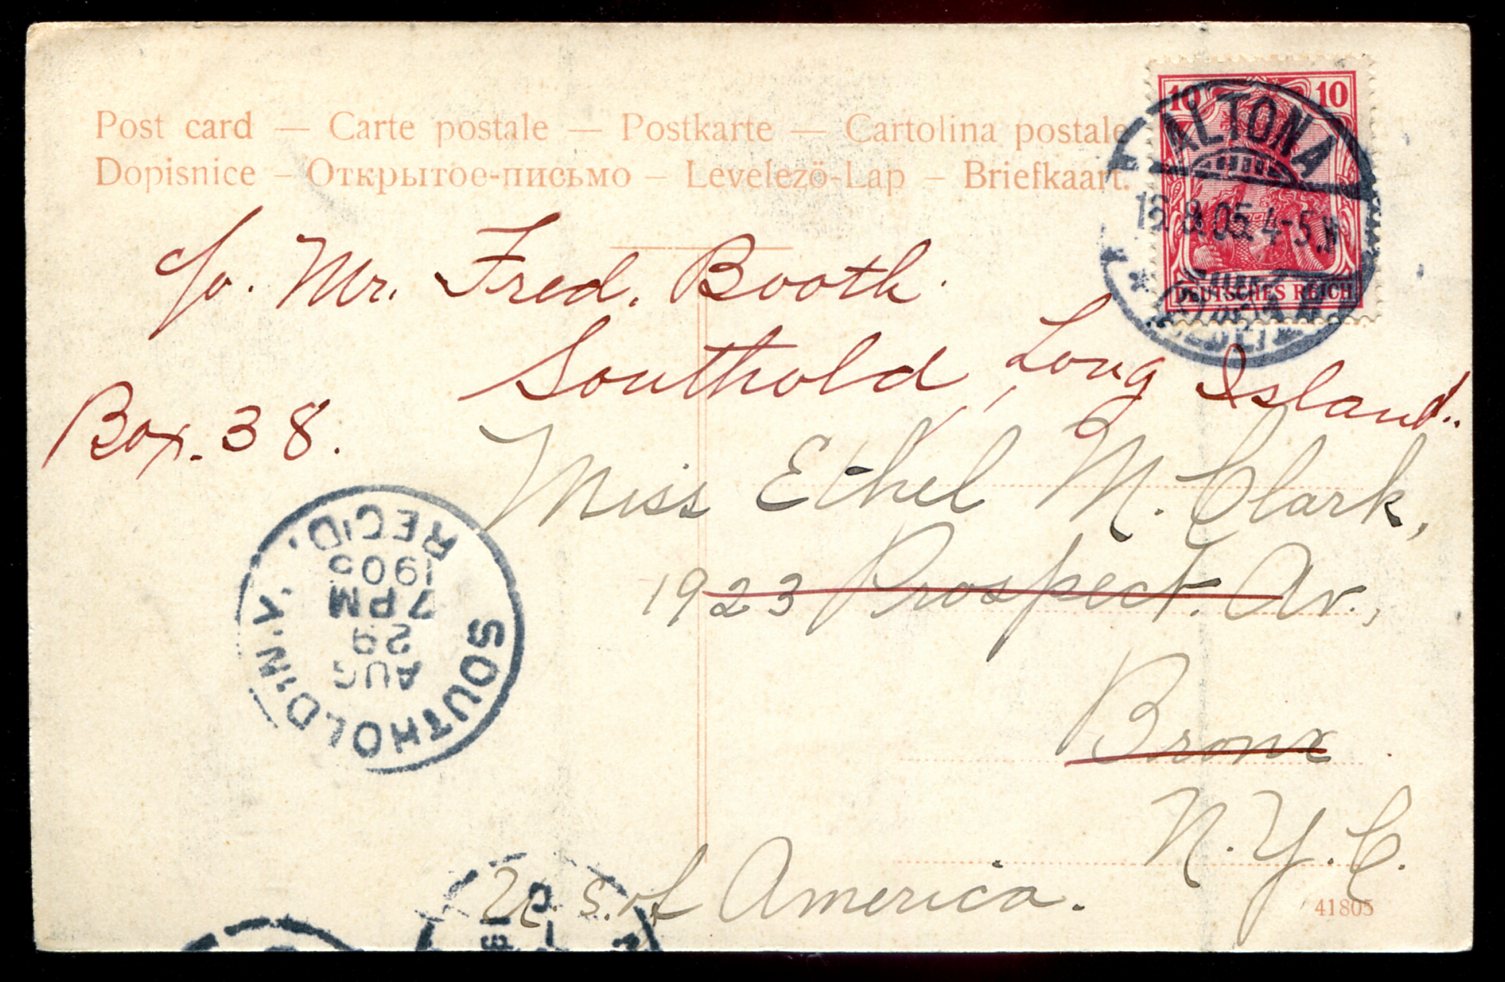 Post card — Carte postale — Postkarte — Cartolina postale
Dopisnice — Открытое-письмо — Levelezö-Lap — Briefkaart.
10 10
ALTONA
16.8.05. 4-5 N
DEUTSCHES REICH
c/o. Mr. Fred. Booth.
Southold, Long Island.
Box. 38.
Miss Ethel M. Clark,
1923 Prospect. Av.,
Bronx
N.Y.C.
U. S. of America.
SOUTHOLD, N.Y.
AUG
29
7 PM
1905
REC'D.
41805